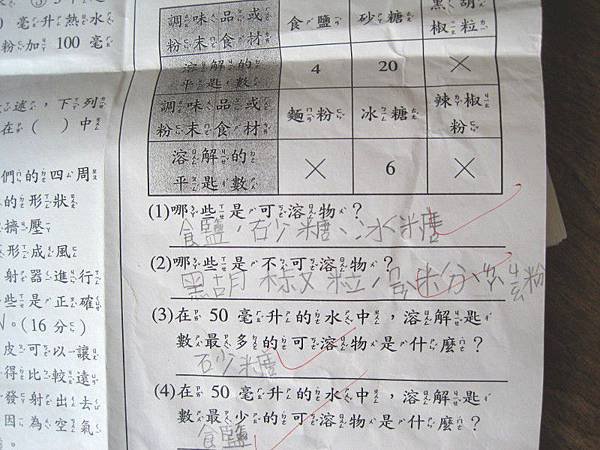 毫升熱水
粉加 100 毫
述,下列
在( )中
們的四周
的形狀
擠壓
形成風
射器進行
些是正確
。(16 分)
皮可以讓
得比較遠
發射出去
因為空氣
調味品或粉末食材 食鹽 砂糖 黑胡椒粒
溶解的平匙數 4 20 ×
調味品或粉末食材 麵粉 冰糖 辣椒粉
溶解的平匙數 × 6 ×
(1)哪些是可溶物?
食鹽、砂糖、冰糖
(2)哪些是不可溶物?
黑胡椒粒、ㄇㄧㄢ粉、ㄌㄚ ㄐㄧㄠ粉
(3)在 50 毫升的水中,溶解匙
數最多的可溶物是什麼?
砂糖
(4)在 50 毫升的水中,溶解匙
數最少的可溶物是什麼?
食鹽